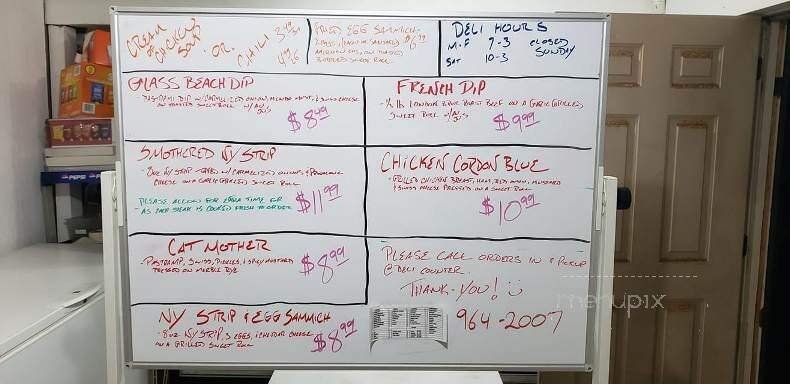 CREAM
OF
CHICKEN
SOUP
OR
CHILI
FRIED EGG SAMMICH
DELI HOURS
M-F 7-3
SAT 10-3
CLOSED
SUNDAY
GLASS BEACH DIP
W/ CARMELIZED ONION, & SWISS CHEESE
$8.49
FRENCH DIP
- 1/2 lb LONDON BROIL ROAST BEEF ON A GARLIC GRILLED
SWEET ROLL W/ AU JUS
$9.99
SMOTHERED NY STRIP
- 8oz NY STRIP W/ CARMELIZED ONIONS &
CHEESE ON A GARLIC GRILLED SWEET ROLL
PLEASE ALLOW FOR EXTRA TIME FOR
AS EACH STEAK IS COOKED FRESH TO ORDER
$11.99
CHICKEN CORDON BLUE
- GRILLED CHICKEN BREAST, HAM, RED ONION, MUSTARD
& SWISS CHEESE PRESSED ON A SWEET ROLL
$10.99
CAT MOTHER
- PASTRAMI, SWISS, PICKLES, & SPICY MUSTARD
PRESSED ON MARBLE RYE
$8.99
PLEASE CALL ORDERS IN & PICKUP
@ DELI COUNTER.
THANK-YOU!
964-2007
NY STRIP & EGG SAMMICH
- 8oz NY STRIP, 3 EGGS, & CHEDDAR CHEESE
ON A GRILLED SWEET ROLL
$8.99
PEPSI
menupix